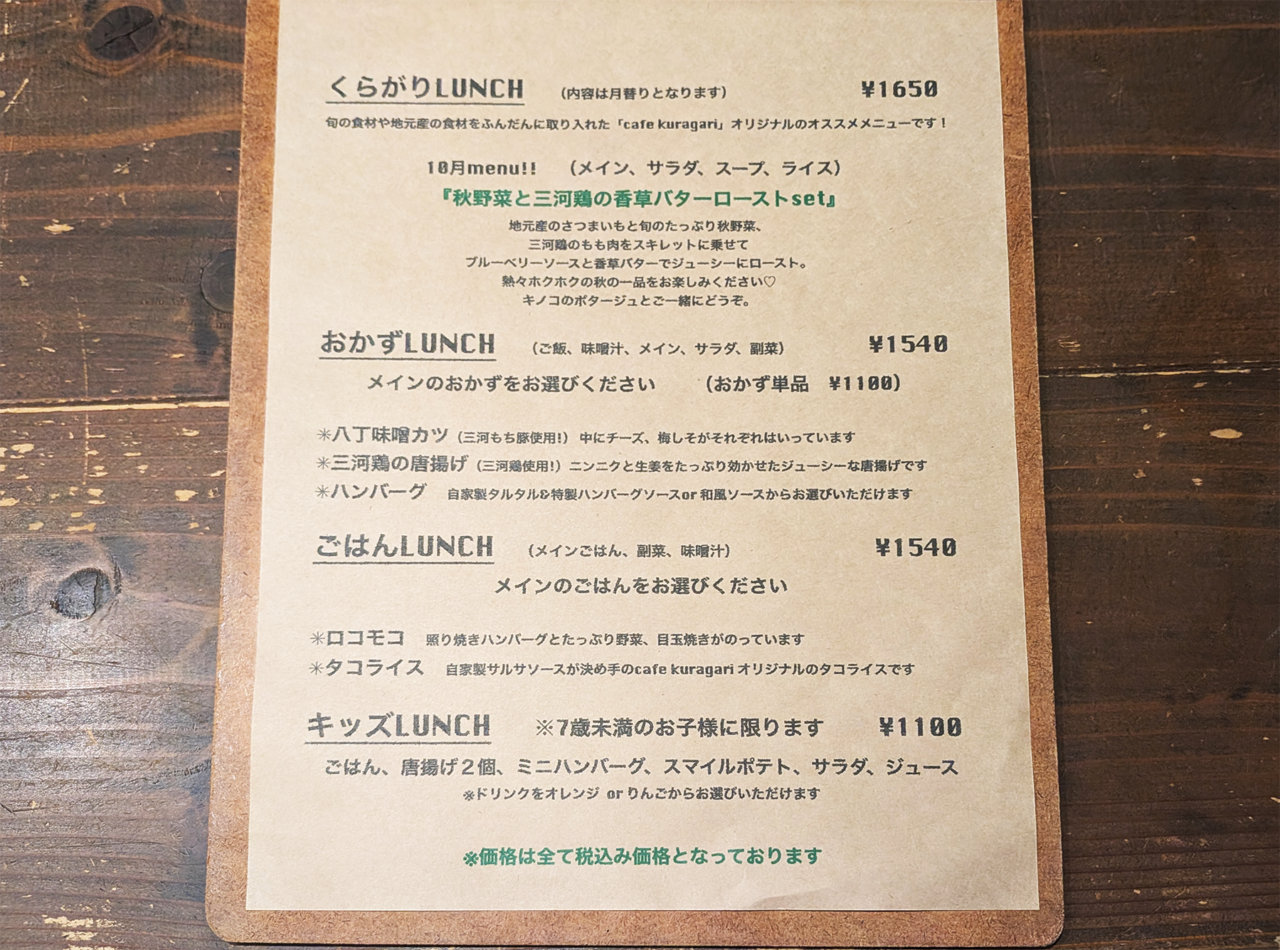 くらがりLUNCH （内容は月替りとなります） ¥1650
旬の食材や地元産の食材をふんだんに取り入れた「cafe kuragari」オリジナルのオススメメニューです！
10月menu!! （メイン、サラダ、スープ、ライス）
『秋野菜と三河鶏の香草バターローストset』
地元産のさつまいもと旬のたっぷり秋野菜、
三河鶏のもも肉をスキレットに乗せて
ブルーベリーソースと香草バターでジューシーにロースト。
熱々ホクホクの秋の一品をお楽しみください♡
キノコのポタージュとご一緒にどうぞ。
おかずLUNCH （ご飯、味噌汁、メイン、サラダ、副菜） ¥1540
メインのおかずをお選びください （おかず単品 ¥1100）
✳八丁味噌カツ（三河もち豚使用!） 中にチーズ、梅しそがそれぞれはいっています
✳三河鶏の唐揚げ（三河鶏使用!）ニンニクと生姜をたっぷり効かせたジューシーな唐揚げです
✳ハンバーグ 自家製タルタル&特製ハンバーグソースor 和風ソースからお選びいただけます
ごはんLUNCH （メインごはん、副菜、味噌汁） ¥1540
メインのごはんをお選びください
✳ロコモコ 照り焼きハンバーグとたっぷり野菜、目玉焼きがのっています
✳タコライス 自家製サルサソースが決め手のcafe kuragari オリジナルのタコライスです
キッズLUNCH ※7歳未満のお子様に限ります ¥1100
ごはん、唐揚げ２個、ミニハンバーグ、スマイルポテト、サラダ、ジュース
※ドリンクをオレンジ or りんごからお選びいただけます
※価格は全て税込み価格となっております